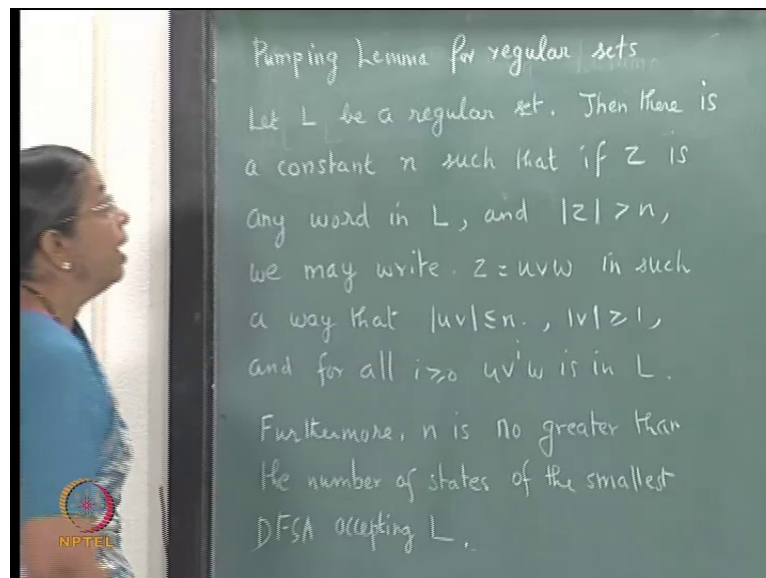 Pumping Lemma for regular sets
Let L be a regular set. Then there is
a constant n such that if Z is
any word in L, and |z| > n,
we may write. Z = uvw in such
a way that |uv| ≤ n., |v| ≥ 1,
and for all i ≥ 0 uvⁱw is in L.
Furthermore, n is no greater than
the number of states of the smallest
DFSA accepting L.
NPTEL